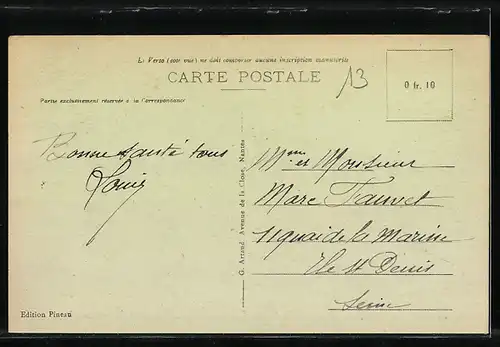 Le Verso (côté vue) ne doit comporter aucune inscription manuscrite
CARTE POSTALE
13
0 fr. 10
Partie exclusivement réservée à la Correspondance
Bonne santé tous
Louis
G. Artaud Avenue de la Close, Nantes
Mme et Monsieur
Marc Fauvet
11 quai de la Marine
Ile St Denis
Seine
Edition Pineau